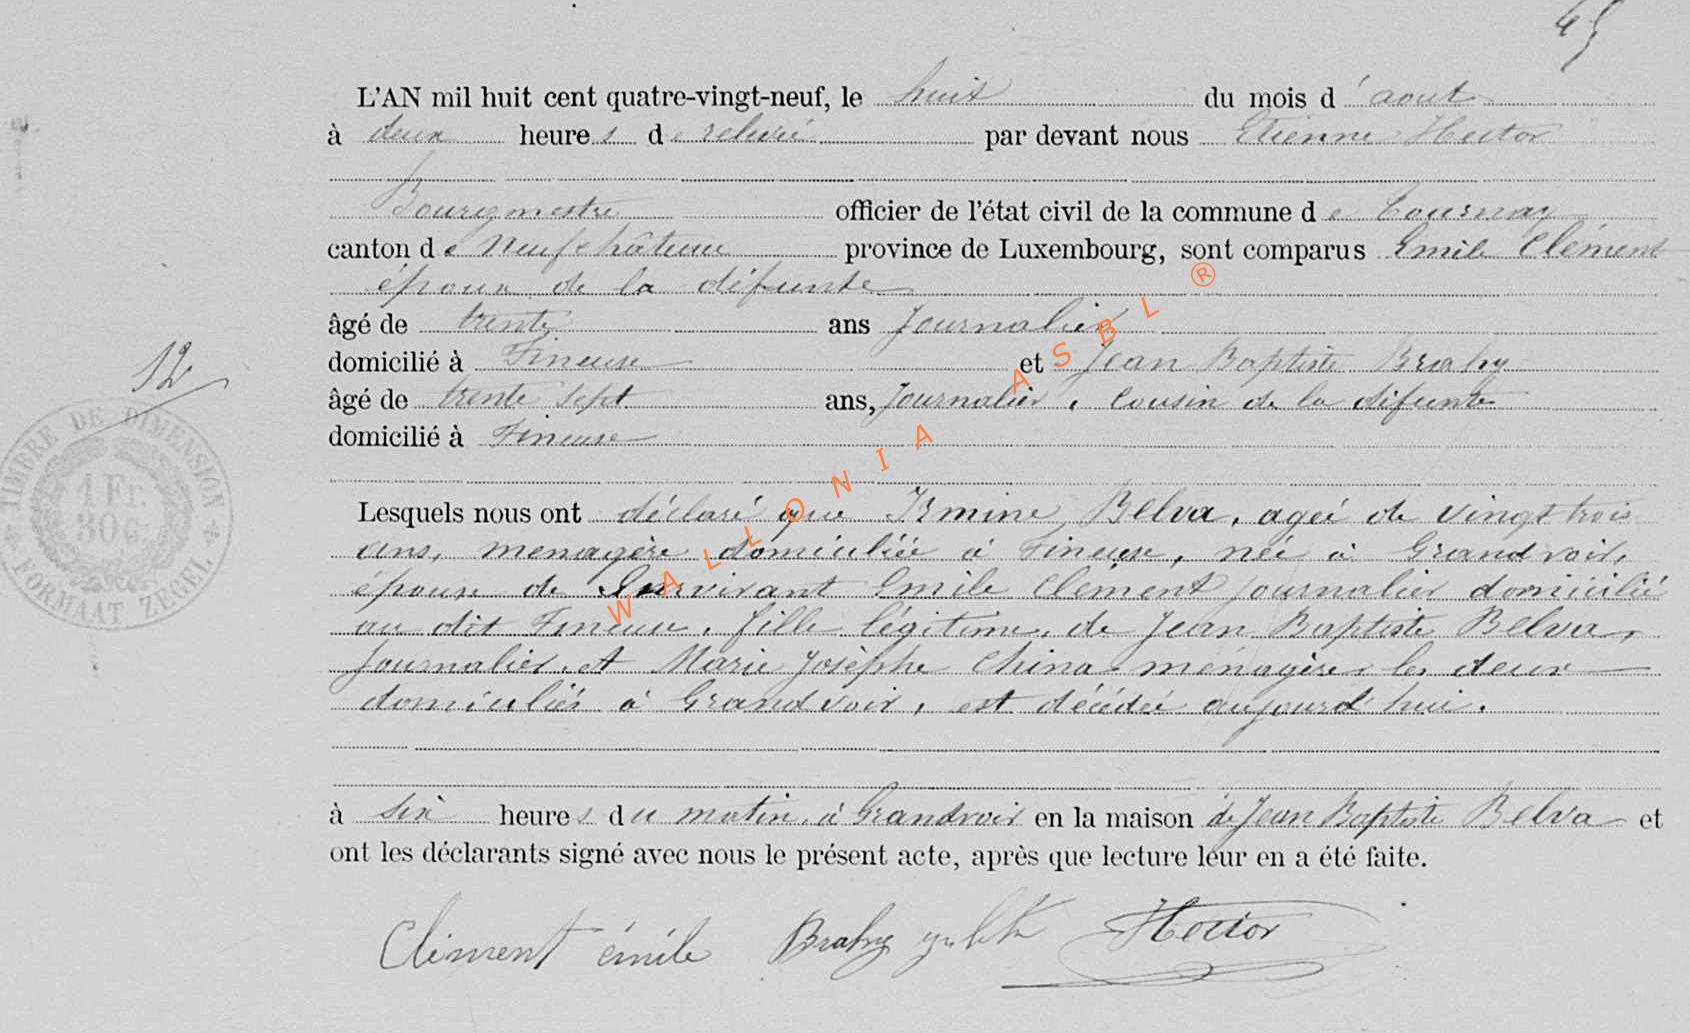 45
L'AN mil huit cent quatre-vingt-neuf, le huit du mois d'aout
à deux heures de relevée par devant nous Etienne Hector
Bourgmestre officier de l'état civil de la commune de Tournay
canton de Neufchâteau province de Luxembourg, sont comparus Emile Clément
époux de la défunte
âgé de trente ans Journalier
domicilié à Fineuse et Jean Baptiste Brahy
âgé de trente sept ans, Journalier, Cousin de la défunte
domicilié à Fineuse
12
TIMBRE DE DIMENSION
1 Fr.
30 C.
FORMAAT ZEGEL
Lesquels nous ont déclaré que Irmine Belva, agée de vingt trois
ans, menagère domiciliée à Fineuse, née à Grandvoir,
épouse de Survivant Emile Clément journalier domicilié
au dit Fineuse, fille légitime, de Jean Baptiste Belva,
Journalier, et Marie Josèphe China ménagère, les deux
domiciliés à Grandvoir, est décédée aujourd'hui.
à six heures du matin, à Grandvoir en la maison de Jean Baptiste Belva et
ont les déclarants signé avec nous le présent acte, après que lecture leur en a été faite.
Clément émile Brahy Hector
WALLONIA ASBL ®